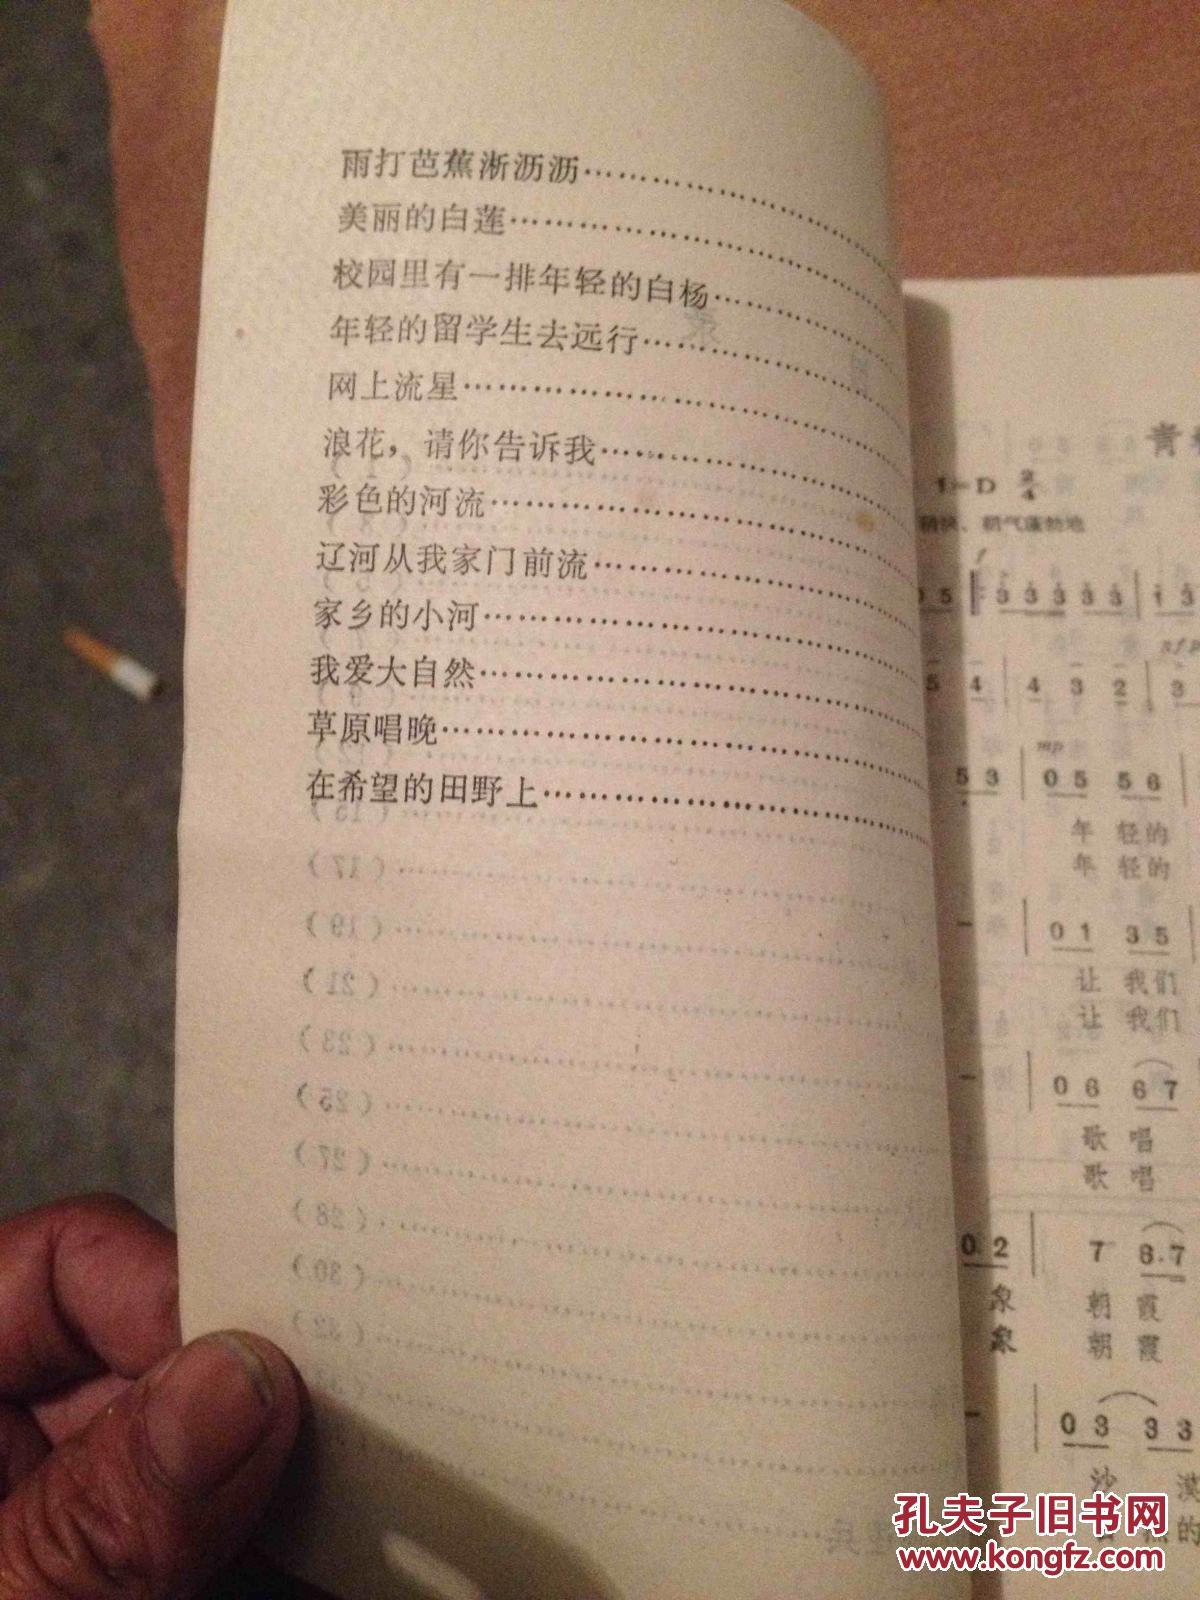 雨打芭蕉淅沥沥
美丽的白莲
校园里有一排年轻的白杨
年轻的留学生去远行
网上流星
浪花，请你告诉我
彩色的河流
辽河从我家门前流
家乡的小河
我爱大自然
草原唱晚
在希望的田野上
(17)
(19)
(21)
(23)
(25)
(27)
(28)
(30)
(32)
青
1=D 2/4
朝气蓬勃地
f
0 5 3 3 3 3 3 1 3
5 4 4 3 2 3
mp
5 3 0 5 5 6
年 轻的
年 轻的
- 0 1 3 5
让 我们
让 我们
- 0 6 6 7
歌 唱
歌 唱
0 2 7 6·7
象 朝 霞
象 朝 霞
- 0 3 3 3
沙 漠
的
孔夫子旧书网
www.kongfz.com